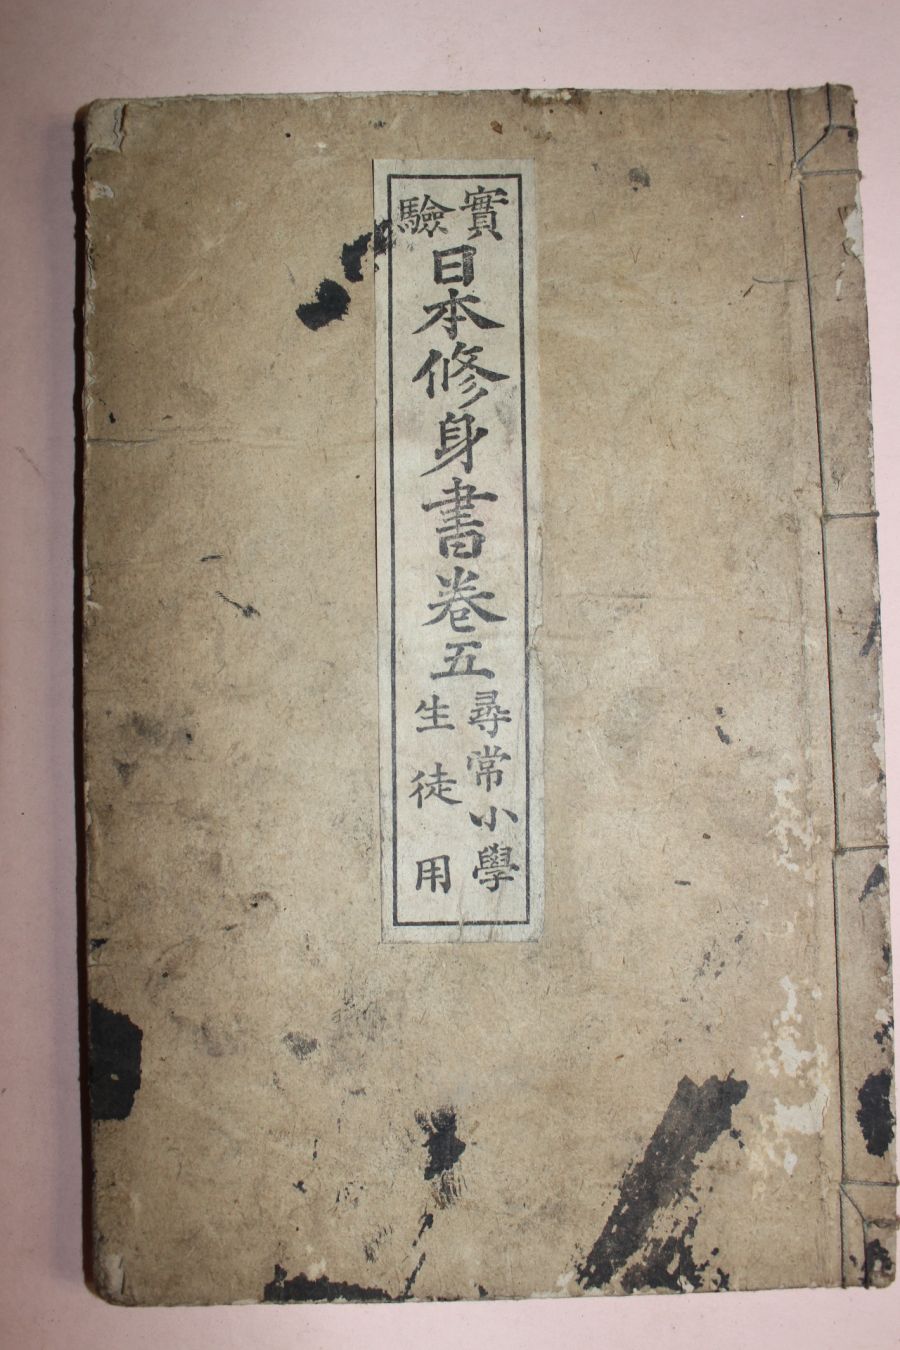 實驗
日本修身書卷五
尋常小學
生徒用